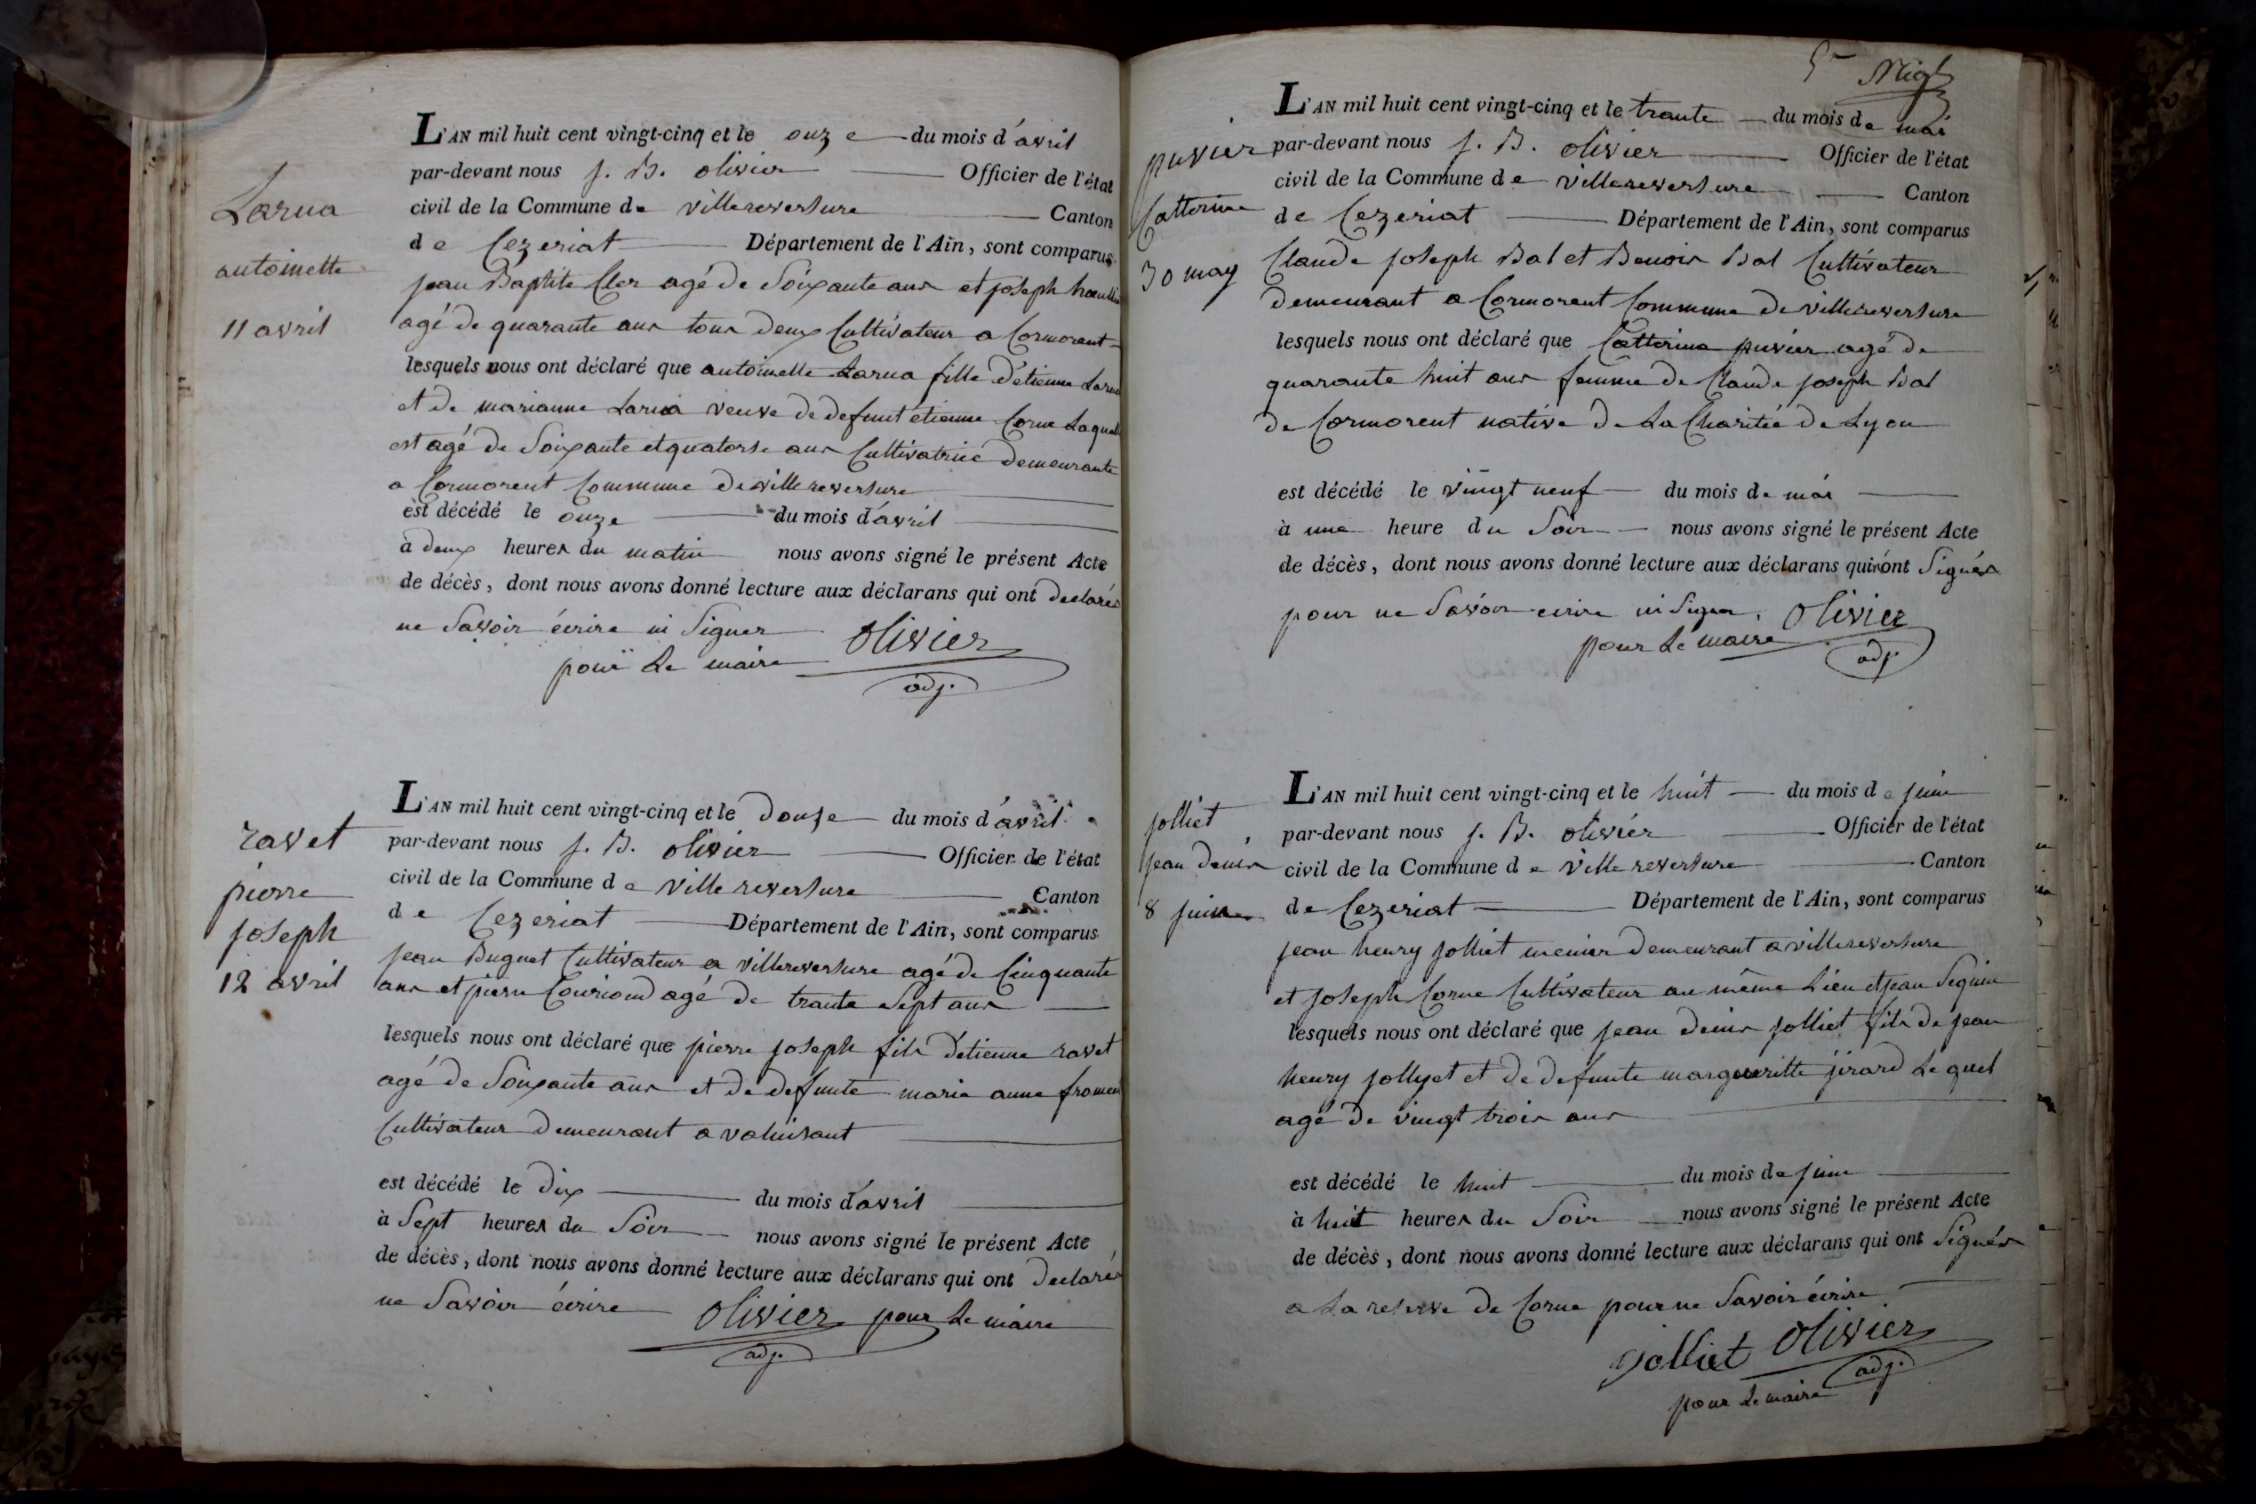 Larua
antoinette
11 avril
L'AN mil huit cent vingt-cinq et le onze du mois d'avril
par-devant nous j. B. olivier Officier de l'état
civil de la Commune de villereversure Canton
de Cezeriat Département de l'Ain, sont comparus
jean Baptite Cler agé de Soixante ans et joseph
agé de quarante ans tous deux Cultivateur a Cormorent
lesquels nous ont déclaré que antoinette Larua fille d'etienne Larua
et de marianne Larua veuve de defunt etienne Corne Laquelle
est agé de Soixante et quatorse ans Cultivatrice demeurante
a Cormorent Commune de villereversure
est décédé le onze du mois d'avril
à deux heures du matin nous avons signé le présent Acte
de décès, dont nous avons donné lecture aux déclarans qui ont declarés
ne Savoir écrire ni Signer olivier
pour Le maire adj.
ravet
pierre
joseph
12 avril
L'AN mil huit cent vingt-cinq et le douse du mois d'avril
par-devant nous j. B. olivier Officier de l'état
civil de la Commune de villereversure Canton
de Cezeriat Département de l'Ain, sont comparus
jean Buguet Cultivateur a villereversure agé de Cinquante
ans et pierre Courioud agé de trante Sept ans
lesquels nous ont déclaré que pierre joseph fils d'etienne ravet
agé de Soixante ans et de defunte maria anne froment
Cultivateur demeurant a valuisant
est décédé le dix du mois d'avril
à Sept heures du Soir nous avons signé le présent Acte
de décès, dont nous avons donné lecture aux déclarans qui ont declarés
ne Savoir écrire olivier pour Le maire
adj.
5
puvier
Catterine
30 may
L'AN mil huit cent vingt-cinq et le trante du mois de mai
par-devant nous j. B. olivier Officier de l'état
civil de la Commune de villereversure Canton
de Cezeriat Département de l'Ain, sont comparus
Claude joseph Bal et Benoir Bal Cultivateur
demeurant a Cormorent Commune de villereversure
lesquels nous ont déclaré que Catterine puvier agé de
quarante huit ans femme de Claude joseph Bal
de Cormorent native de La Charitée de Lyon
est décédé le vingt neuf du mois de mai
à une heure du Soir nous avons signé le présent Acte
de décès, dont nous avons donné lecture aux déclarans qui n'ont Signés
pour ne Savoir ecrire ni Signer. olivier
pour Le maire adj.
jolliet
jean denis
8 juin
L'AN mil huit cent vingt-cinq et le huit du mois de juin
par-devant nous j. B. olivier Officier de l'état
civil de la Commune de villereversure Canton
de Cezeriat Département de l'Ain, sont comparus
jean henry jolliet menier demeurant a villereversure
et joseph Corne Cultivateur au même Lieu et jean Seguin
lesquels nous ont déclaré que jean denis jolliet fils de jean
henry jollyet et de defunte margueritte jirard Le quel
agé de vingt trois ans
est décédé le huit du mois de juin
à huit heures du Soir nous avons signé le présent Acte
de décès, dont nous avons donné lecture aux déclarans qui ont Signés
a La reserve de Corne pour ne Savoir écrire
jolliet olivier
pour Le maire adj.